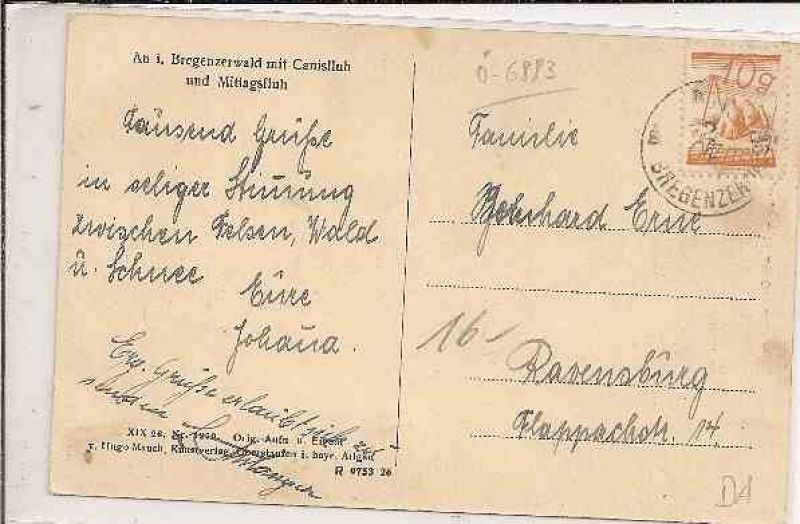 Au i. Bregenzerwald mit Canisfluh
und Mittagsfluh
Tausend Grüße
in seliger Stimmung
zwischen Felsen, Wald
u. Schnee
Eure
Johana.
Erg. Grüße erlaubt sich
XIX 26. Nr. Orig. Aufn. u. Eigent.
v. Hugo Mauch, Kunstverlag, Oberstaufen i. bayr. Allgäu
R 0753 26
Ö-6883
10g
BREGENZER
Familie
Erne
16-
Ravensburg
Flappachstr. 14
D4